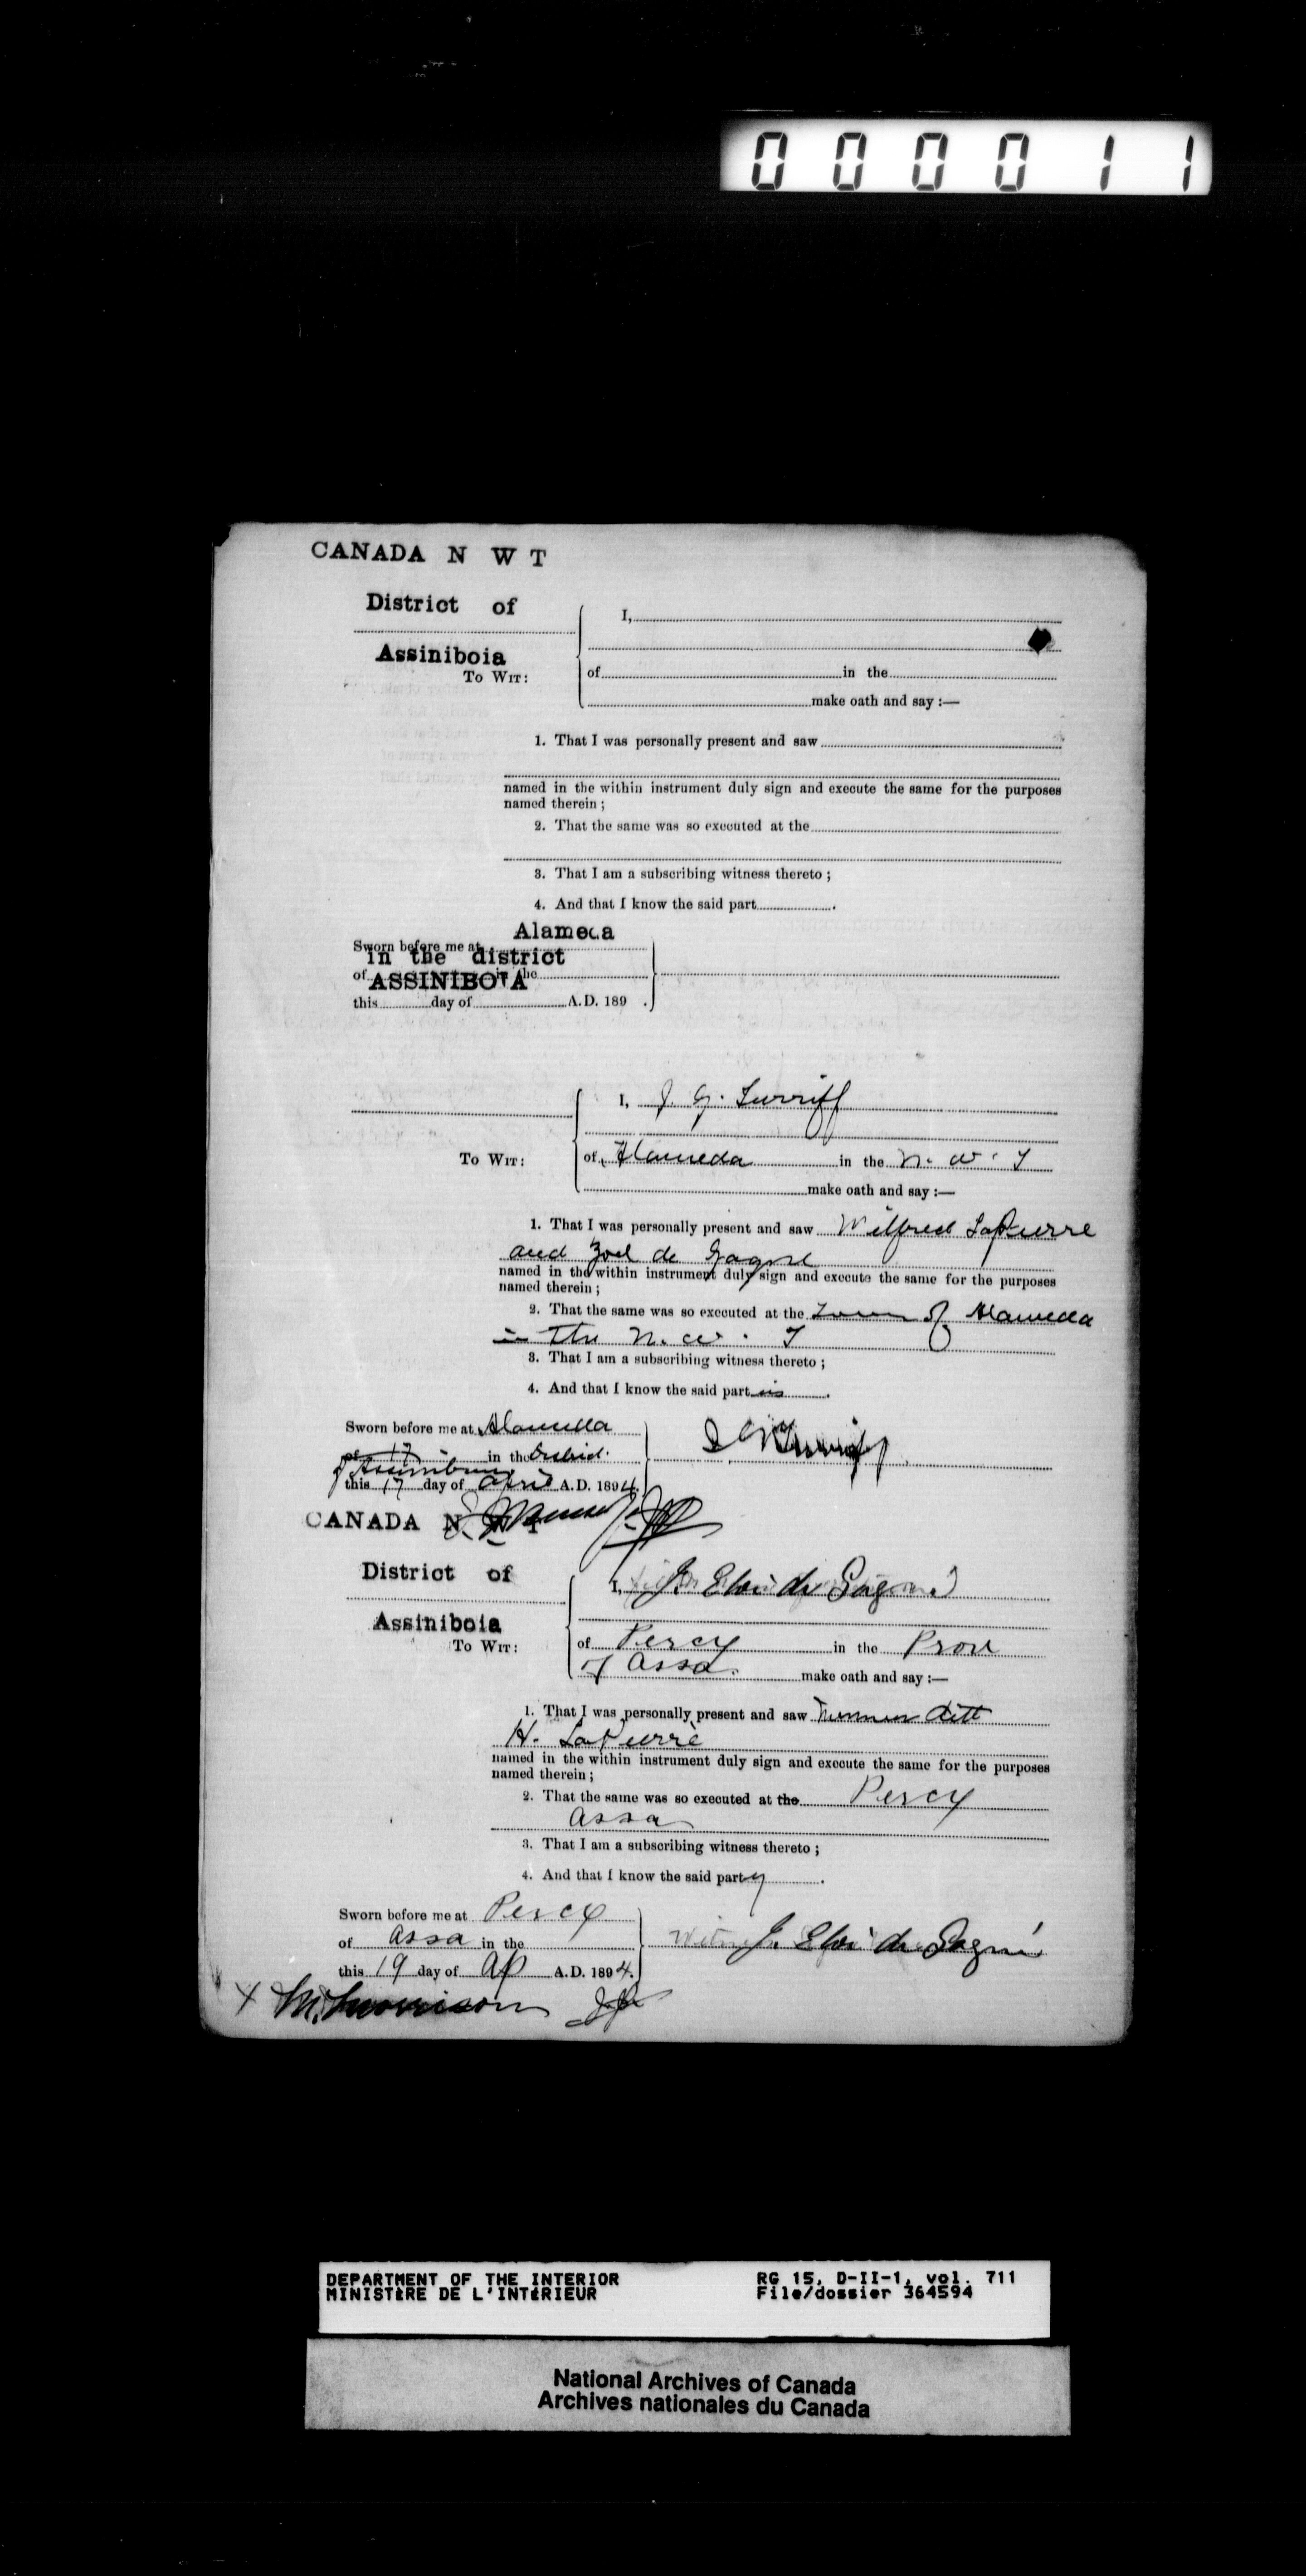 000011
CANADA N W T
District of
Assiniboia
To Wit:
I,
of in the
make oath and say :—
1. That I was personally present and saw
named in the within instrument duly sign and execute the same for the purposes
named therein ;
2. That the same was so executed at the
3. That I am a subscribing witness thereto ;
4. And that I know the said part .
Alameda
Sworn before me at
in the district
of in the
ASSINIBOIA
this day of A.D. 189 .
I, J. G. Turriff
To Wit:
of Alameda in the N. W. T
make oath and say :—
1. That I was personally present and saw Wilfred LaPierre
and Zoel de Gagné
named in the within instrument duly sign and execute the same for the purposes
named therein ;
2. That the same was so executed at the Town of Alameda
in the N. W. T
3. That I am a subscribing witness thereto ;
4. And that I know the said part is .
Sworn before me at Alameda
of 17 in the
of Assiniboia
this 17 day of April A.D. 1894.
CANADA N W T
District of
Assiniboia
To Wit:
I, J. Eloi de Gagné
of Percy in the Prov
of Assa. make oath and say :—
1. That I was personally present and saw
H. LaPierre
named in the within instrument duly sign and execute the same for the purposes
named therein ;
2. That the same was so executed at the Percy
Assa
3. That I am a subscribing witness thereto ;
4. And that I know the said party .
Sworn before me at Percy
of Assa in the
this 19 day of Ap A.D. 1894.
Witness J. Eloi de Gagné
X M. Morrison J.P.
DEPARTMENT OF THE INTERIOR
MINISTÈRE DE L'INTÉRIEUR
RG 15, D-II-1, vol. 711
File/dossier 364594
National Archives of Canada
Archives nationales du Canada